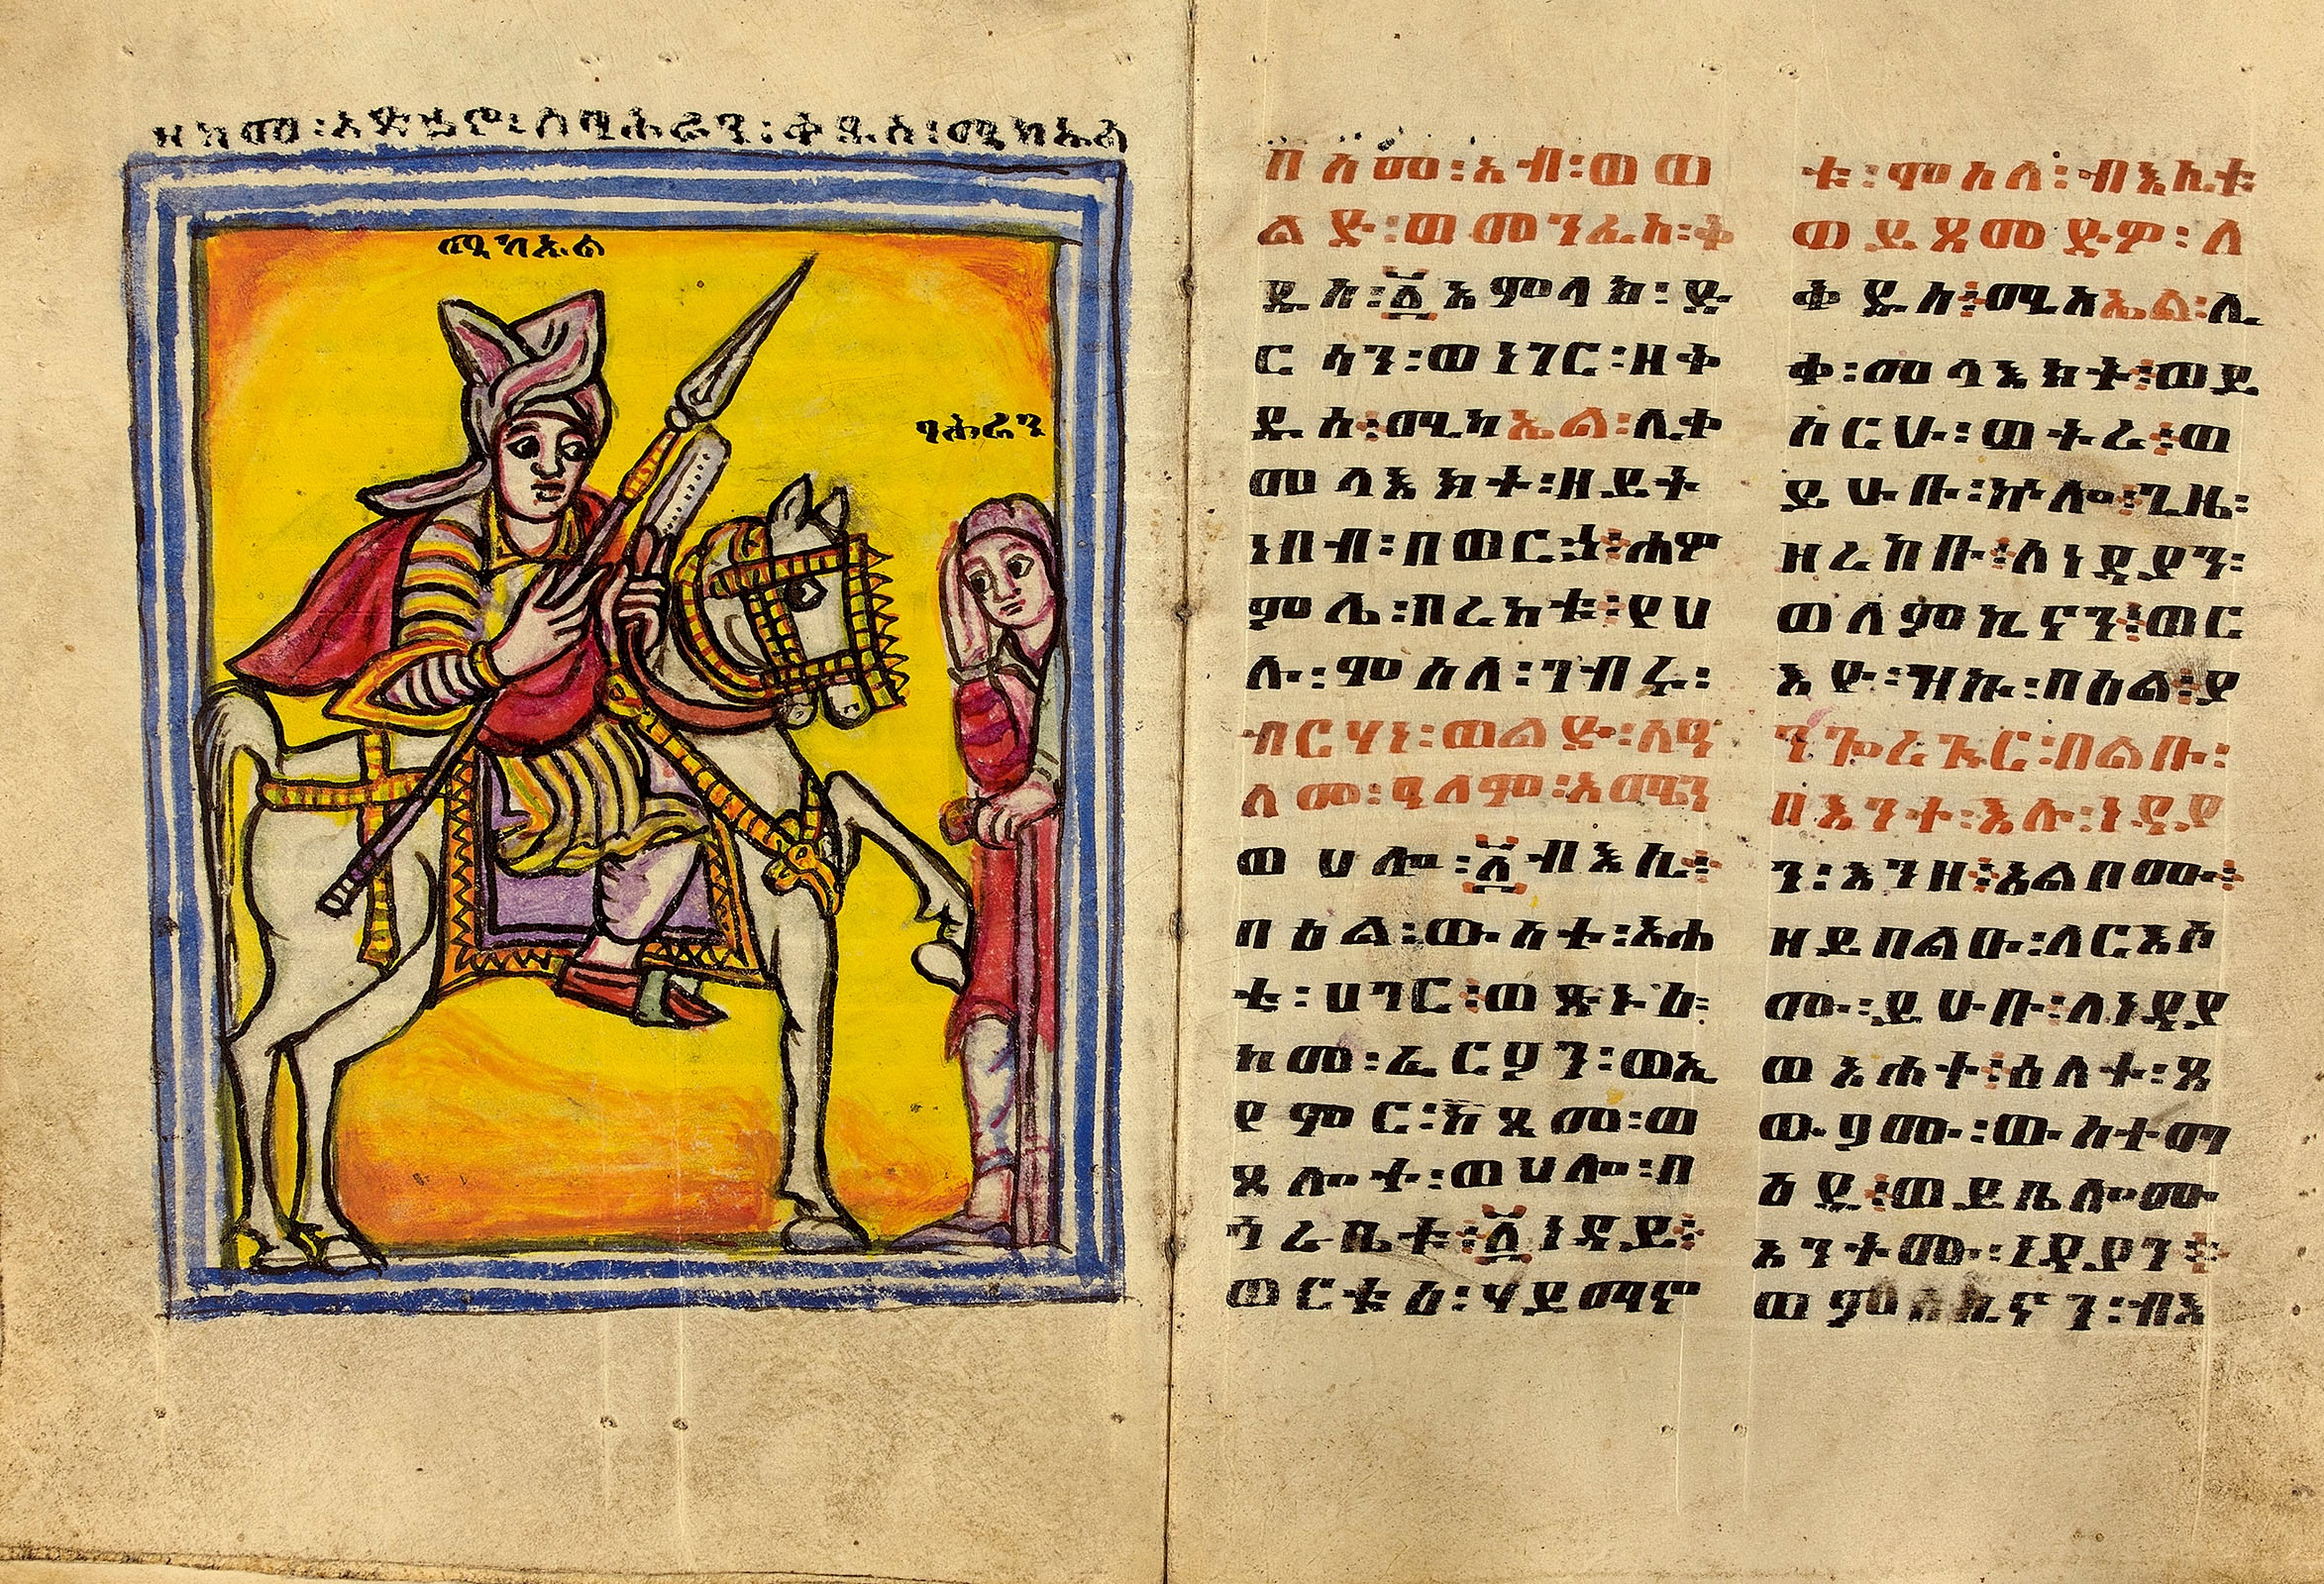 ዘከመ፡አድኅኖ፡ለባሕራን፡ቅዱስ፡ሚካኤል
ሚካኤል
ባሕራን
በስመ፡አብ፡ወወ
ልድ፡ወመንፈስ፡ቅ
ዱስ፡፩አምላክ፡ድ
ርሳን፡ወነገር፡ዘቅ
ዱስ፡ሚካኤል፡ሊቀ
መላእክት፡ዘይት
ነበብ፡በወርኃ፡ሐም
ምሌ፡በረከቱ፡የሀ
ሉ፡ምስለ፡ገብሩ፡
ብርሃነ፡ወልድ፡ለዓ
ለመ፡ዓለም፡አሜን
ወሀሎ፡፩ብእሲ፡
በዕል፡ውስተ፡አሐ
ቲ፡ሀገር፡ወጽኑዕ፡
ከመ፡ፈርዖን፡ወኢ
የምር፡እጾመ፡ወ
ጸሎት፡ወሀሎ፡በ
ጎረቤቱ፡፩ነዳይ፡
ወርቱዕ፡ሃይማኖ
ቱ፡ምስለ፡ብእሲቱ፡
ወይጸመድዎ፡ለ
ቅዱስ፡ሚካኤል፡ሊ
ቀ፡መላእክት፡ወይ
ስርሁ፡ወትረ፡ወ
ይሁቡ፡ኵሎ፡ጊዜ፡
ዘረከቡ፡ለነዳያን፡
ወለምኪኖን፡ወር
እዮ፡ዝኩ፡በዕል፡ያ
ንጐረጕር፡በልቡ፡
በእንተ፡እሉ፡ነዳያ
ን፡እንዘ፡አልቦሙ፡
ዘይበልዑ፡ለርእሶ
ሙ፡ይሁቡ፡ለነዳያ
ወአሐተ፡ዕለተ፡ጸ
ውዖሙ፡ውስተ፡ማ
ዕድ፡ወይቤሎሙ
አንትሙ፡ነዳያን፡
ወምስኪኖን፡ብእ